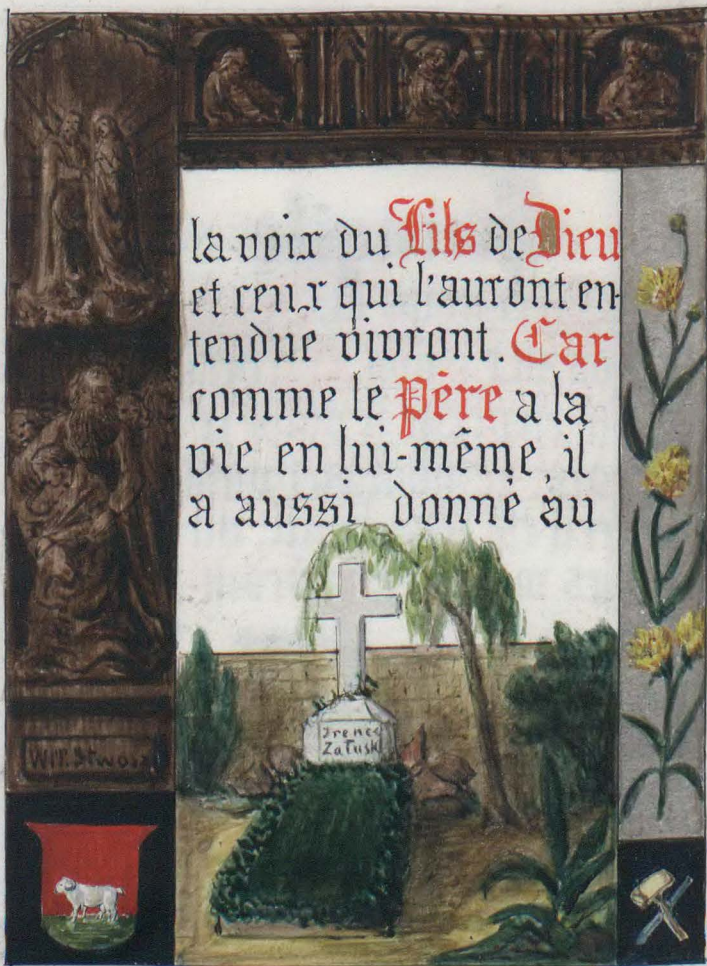 la voix du Fils de Dieu
et ceux qui l'auront en-
tendue vivront. Car
comme le Père a la
vie en lui-même, il
a aussi donné au
Irene
Załusk
WIT. Stwosz